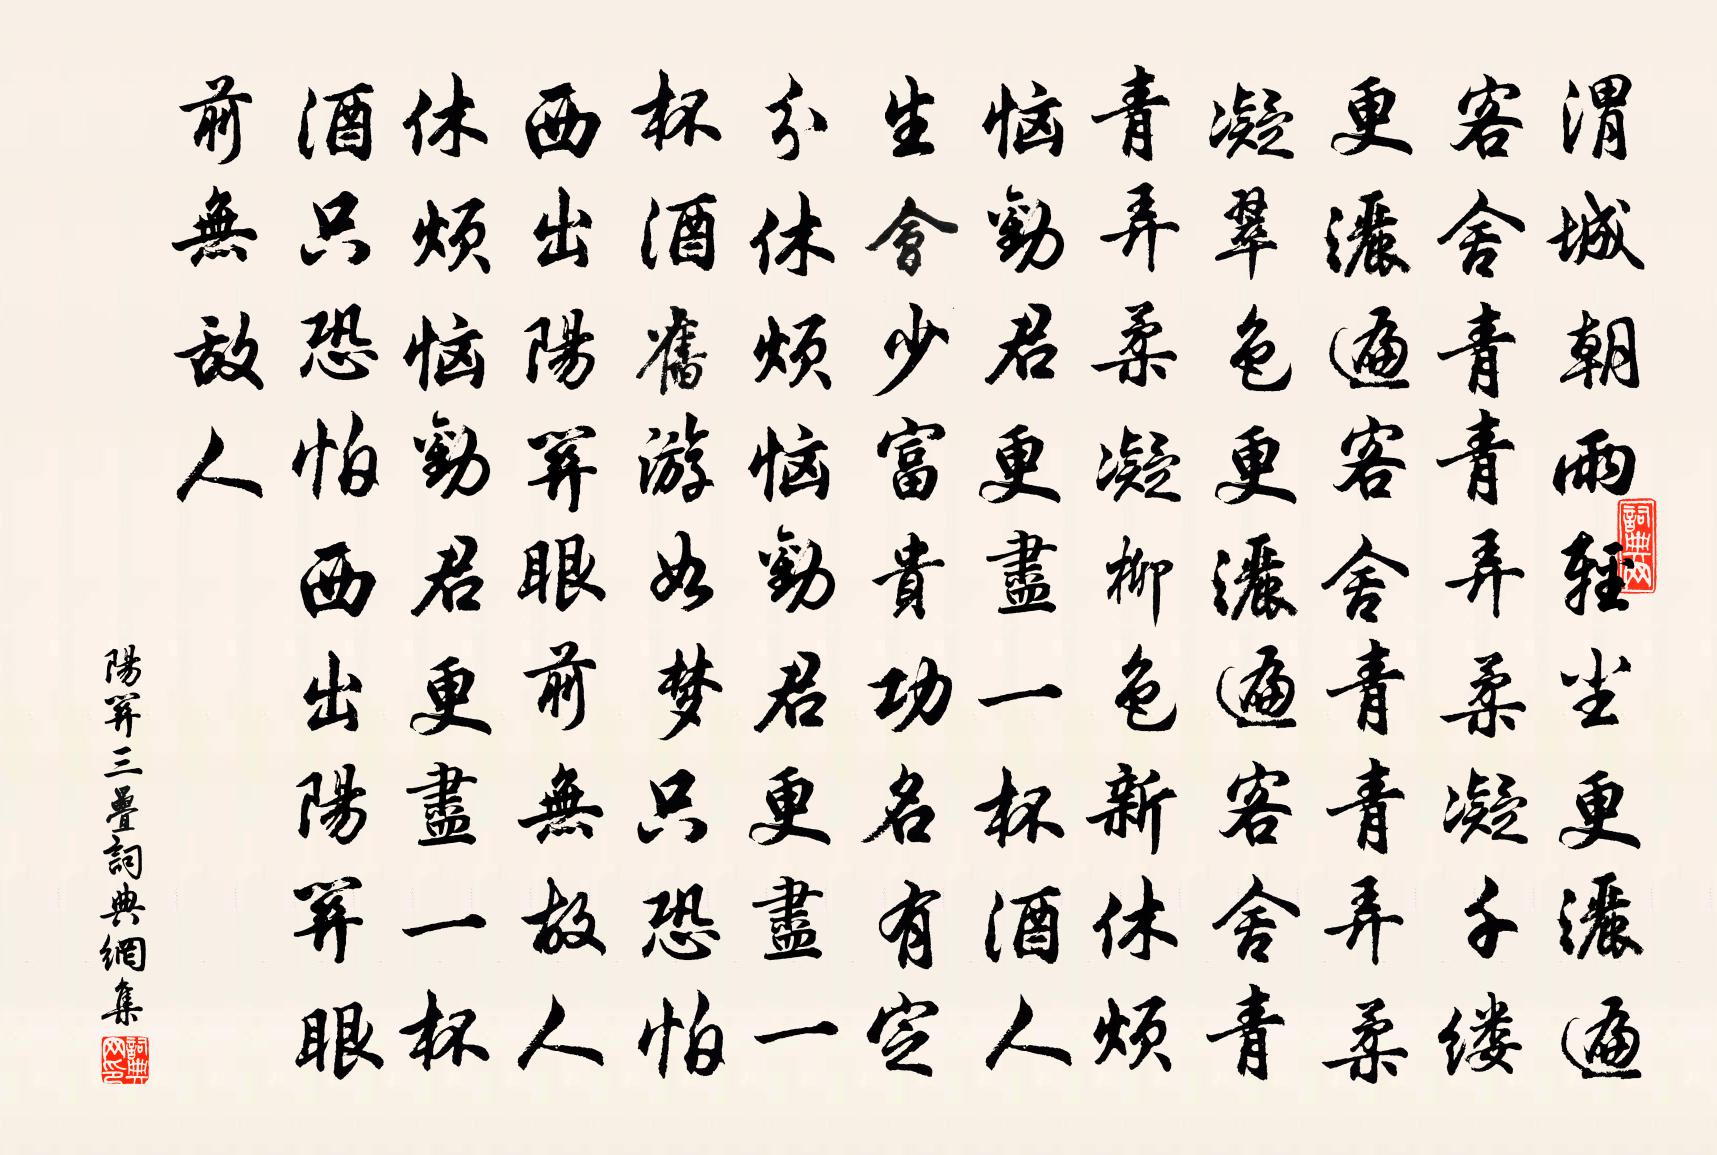 渭城朝雨輕尘更灑遍
客舍青青弄柔凝千缕
更灑遍客舍青青弄柔
凝翠色更灑遍客舍青
青弄柔凝柳色新休烦
恼勸君更盡一杯酒人
生會少富貴功名有定
分休烦恼勸君更盡一
杯酒舊游如梦只恐怕
西出陽關眼前無故人
休烦恼勸君更盡一杯
酒只恐怕西出陽關眼
前無故人
陽關三疊詞典網集
詞典网
詞典网印